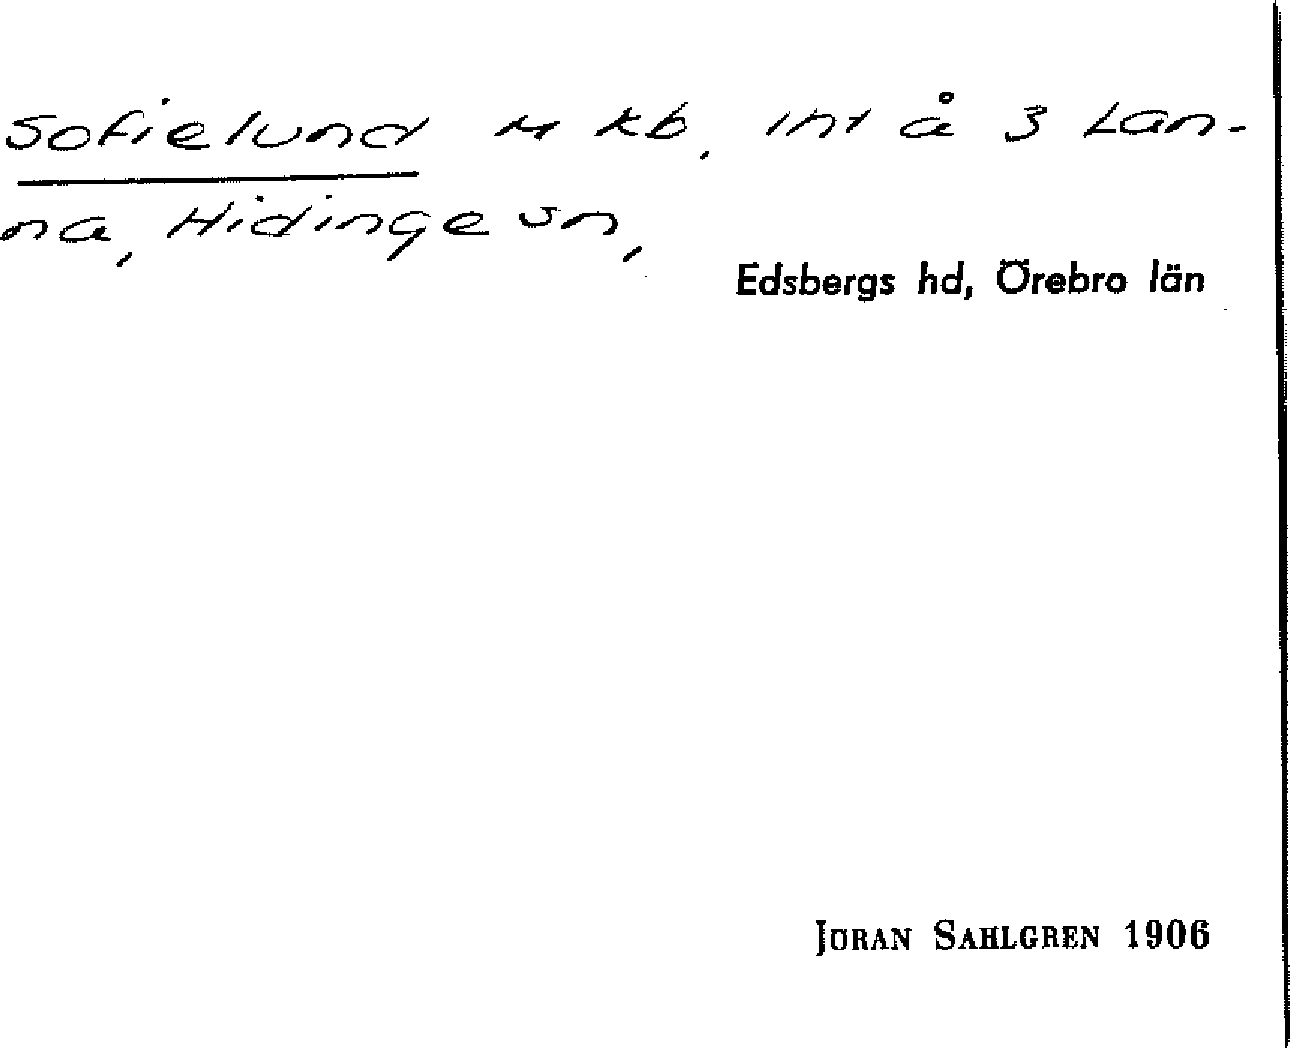 Sofielund M kb, int å 3 Lan-
na, Hidinge sn,
Edsbergs hd, Örebro län
JÖRAN SAHLGREN 1906